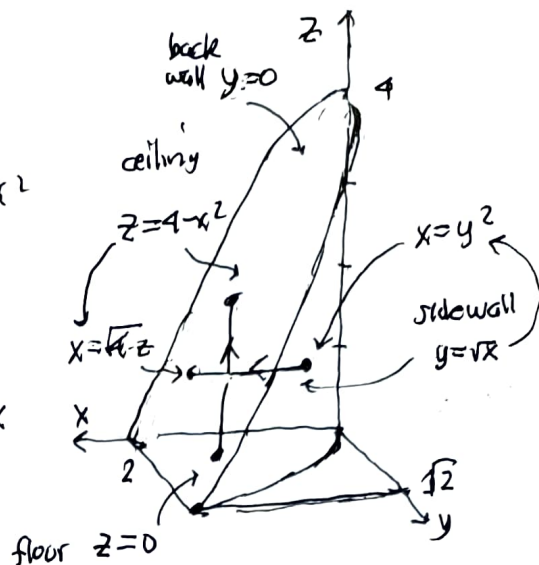 z
back
wall y=0
4
ceiling
x²
z=4-x²
x=y²
sidewall
x=√4-z
y=√x
x
x
2
√2
y
floor z=0